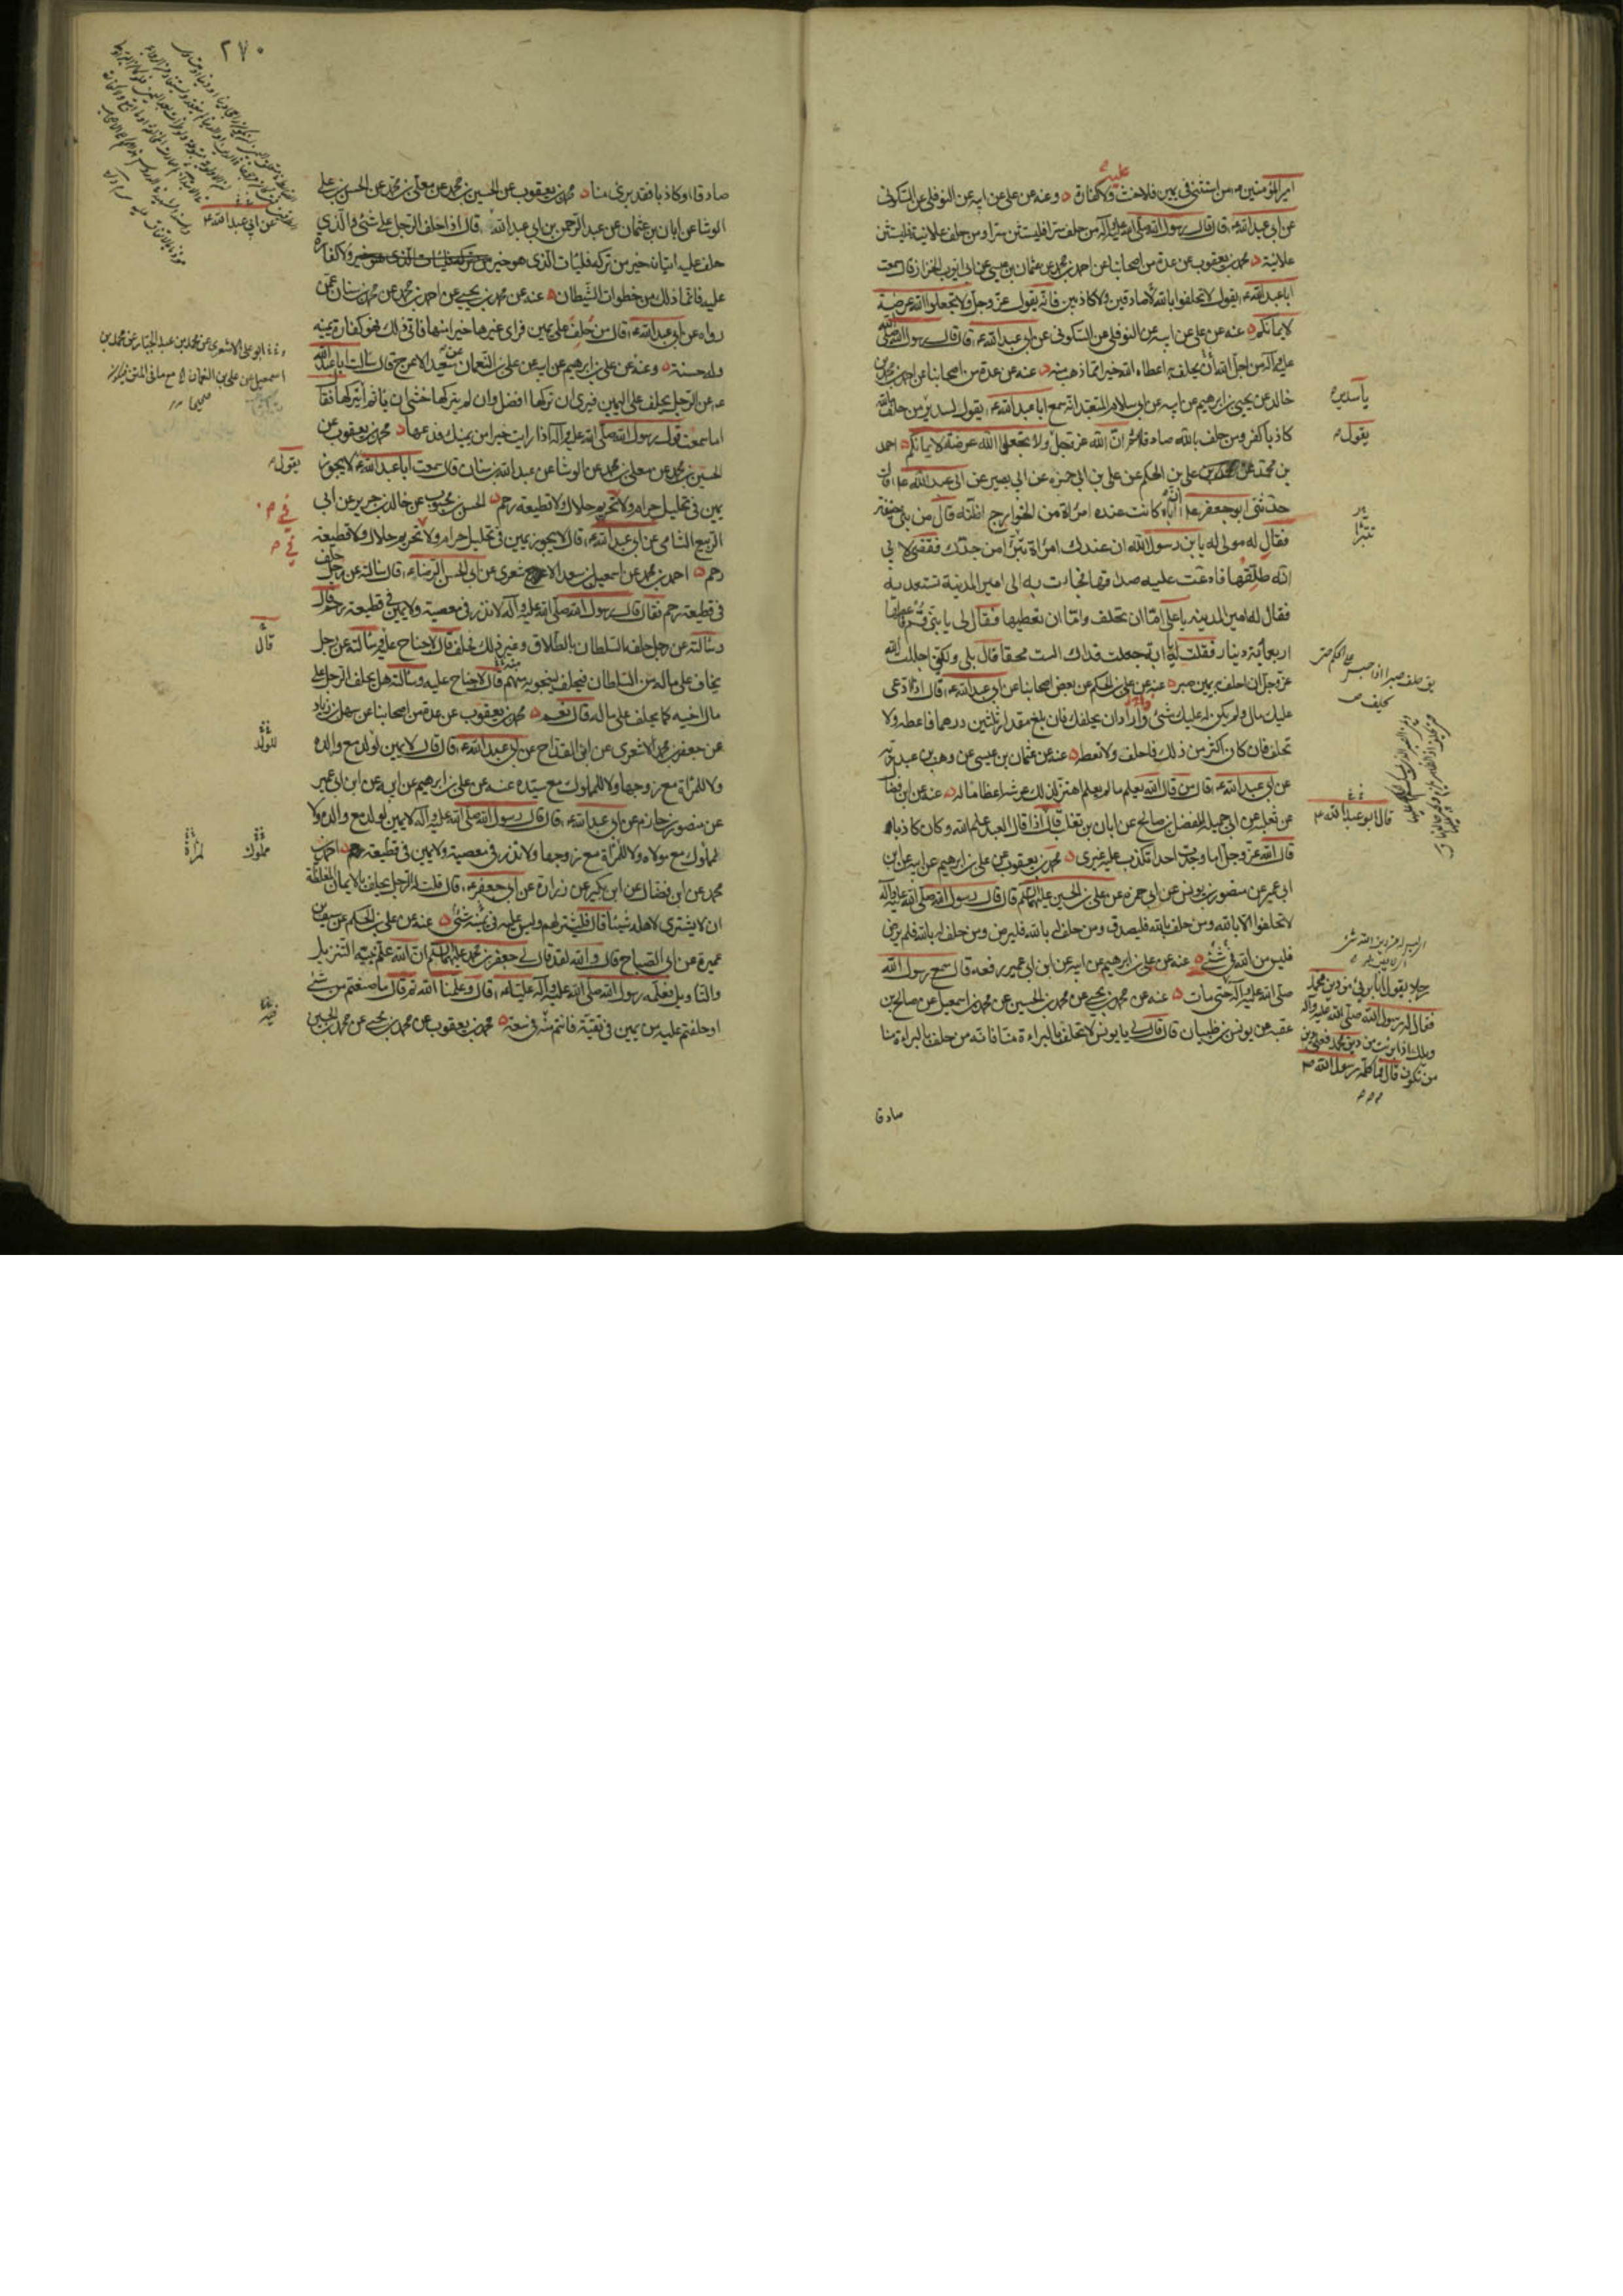 امير المؤمنين من استثنى في يمين فلا حنث ولا كفارة وعنه عن علي عن ابيه عن النوفلي عن السكوني
عن ابي عبد الله ع قال قال رسول الله صلى الله عليه وآله من حلف سرا فليستثن سرا ومن حلف علانية فليستثن
علانية محمد بن يعقوب عن عدة من اصحابنا عن احمد بن محمد عن عثمان بن عيسى عن ابي ايوب الخزاز قال سمعت
ابا عبد الله ع يقول لا تحلفوا بالله صادقين ولا كاذبين فانه يقول عز وجل ولا تجعلوا الله عرضة
لايمانكم عنه عن علي عن ابيه عن النوفلي عن السكوني عن ابي عبد الله ع قال قال رسول الله صلى الله
عليه وآله من اجل الله ان يحلف به اعطاه الله خيرا مما ذهب منه عنه عن عدة من اصحابنا عن احمد بن محمد بن
خالد عن يحيى بن ابراهيم عن ابيه عن ابي سلام المتعبد انه سمع ابا عبد الله ع يقول لسدير من حلف بالله
كاذبا كفر ومن حلف بالله صادقا اثم ان الله عز وجل ولا تجعلوا الله عرضة لايمانكم احمد
بن محمد عن علي بن الحكم عن علي بن ابي حمزه عن ابي بصير عن ابي عبد الله ع قال
حدثني ابو جعفر ع ان اباه كانت عنده امراة من الخوارج اظنه قال من بني حنيفة
فقال له مولى له يا بن رسول الله ان عندك امراة تبرأ من جدك فقضى لابي
انه طلقها فادعت عليه صداقها فجاءت به الى امير المدينة تستعديه
فقال له امير المدينه يا علي اما ان تحلف واما ان تعطيها فقال لي يا بني قم فاعطها
اربعمائة دينار فقلت له يا ابة جعلت فداك الست محقا قال بلى ولكني اجللت الله
عز وجل ان احلف به يمين صبر عنه عن علي بن الحكم عن بعض اصحابنا عن ابي عبد الله ع قال اذا ادعي
عليك مال ولم يكن له عليك شئ واراد ان يحلفك فان بلغ مقدار ثلثين درهما فاعطه ولا
تحلف فان كان اكثر من ذلك فاحلف ولا تعطه عنه عن عثمان بن عيسى عن وهب بن عبد ربه
عن ابي عبد الله ع قال من قال الله يعلم ما لم يعلم اهتز لذلك عرشه اعظاما له عنه عن ابن فضال
عن ثعلبه عن ابي جميله المفضل بن صالح عن ابان بن تغلب قال اذا قال العبد علم الله وكان كاذبا
قال الله عز وجل اما وجدت احدا تكذب عليه غيري محمد بن يعقوب عن علي بن ابراهيم عن ابيه عن ابن
ابي عمير عن منصور بن يونس عن ابي حمزه عن علي بن الحسين عليهما السلم قال قال رسول الله صلى الله عليه وآله
لا تحلفوا الا بالله ومن حلف بالله فليصدق ومن حلف له بالله فليرض ومن حلف له بالله فلم يرض
فليس من الله في شئ عنه عن علي بن ابراهيم عن ابيه عن ابن ابي عمير رفعه قال سمع رسول الله
صلى الله عليه وآله حتى مات عنه عن محمد بن يحيى عن محمد بن الحسين عن محمد بن اسمعيل عن صالح بن
عقبه عن يونس بن ظبيان قال قال لي يا يونس لا تحلف بالبراءة منا فانه من حلف بالبراءة منا
صادقا
يا سدير
يقول
قال ابو عبد الله ع
رجلا يقول انا بريئ من دين محمد
فقال له رسول الله صلى الله عليه وآله
ويلك اذا برئت من دين محمد فعلى دين
من تكون قال فما كلمه رسول الله
٢٧٠
صادقا او كاذبا فقد برئ منا محمد بن يعقوب عن الحسين بن محمد عن معلى بن محمد عن الحسن بن علي
الوشا عن ابان بن عثمان عن عبد الرحمن بن ابي عبد الله قال اذا حلف الرجل على شئ والذي
حلف عليه اتيانه خير من تركه فليات الذي هو خير ولا كفارة
عليه فانما ذلك من خطوات الشيطان عنه عن محمد بن يحيى عن احمد بن محمد عن محمد بن سنان عمن
رواه عن ابي عبد الله ع قال من حلف على يمين فراى غيرها خيرا منها فاتى ذلك فهو كفارة يمينه
وله حسنة وعنه عن علي بن ابراهيم عن ابيه عن علي بن النعمان عن سعيد الاعرج قال سالت ابا عبد الله
ع عن الرجل يحلف على اليمين فيرى ان تركها افضل وان لم يتركها خشي ان ياثم ايتركها فقال
اما سمعت قول رسول الله صلى الله عليه وآله اذا رايت خيرا من يمينك فدعها محمد بن يعقوب عن
الحسين بن محمد عن معلى بن محمد عن الوشا عن عبد الله بن سنان قال سمعت ابا عبد الله ع لا يجوز
يمين في تحليل حرام ولا تحريم حلال ولا قطيعة رحم الحسن بن محبوب عن خالد بن جرير عن ابي
الربيع الشامي عن ابي عبد الله ع قال لا يجوز يمين في تحليل حرام ولا تحريم حلال ولا قطيعة
رحم احمد بن محمد عن اسمعيل بن سعد الاشعري عن ابي الحسن الرضا ع قال سالته عن رجل حلف
في قطيعة رحم فقال قال رسول الله صلى الله عليه وآله لا نذر في معصية ولا يمين في قطيعة رحم قال
وسالته عن رجل حلفه السلطان بالطلاق وغير ذلك فحلف قال لا جناح عليه وسالته عن رجل
يخاف على ماله من السلطان فيحلف لينجو به منهم قال لا جناح عليه وسالته هل يحلف الرجل على
مال اخيه كما يحلف على ماله قال نعم محمد بن يعقوب عن عدة من اصحابنا عن سهل بن زياد
عن جعفر بن محمد الاشعري عن ابن القداح عن ابي عبد الله ع قال قال لا يمين لولد مع والده
ولا للمراة مع زوجها ولا للمملوك مع سيده عنه عن علي بن ابراهيم عن ابيه عن ابن ابي عمير
عن منصور بن حازم عن ابي عبد الله ع قال قال رسول الله صلى الله عليه وآله لا يمين لولد مع والده ولا
لمملوك مع مولاه ولا للمراة مع زوجها ولا نذر في معصية ولا يمين في قطيعة رحم احمد بن
محمد عن ابن فضال عن ابن بكير عن زرارة عن ابي جعفر ع قال قلت له الرجل يحلف بالايمان المغلظة
ان لا يشتري لاهله شيئا قال فليشتر لهم وليس عليه في يمينه شئ عنه عن علي بن الحكم عن سيف بن
عميرة عن ابي الصباح قال والله لقد قال لي جعفر بن محمد عليهما السلم ان الله علم نبيه التنزيل
والتاويل فعلمه رسول الله صلى الله عليه وآله عليا ع قال وعلمنا الله ثم قال ما صنعتم من شئ
او حلفتم عليه من يمين في تقية فانتم منه في سعة محمد بن يعقوب عن محمد بن يحيى عن محمد بن الحسين
عن ابي عبد الله ع
ابو علي الاشعري عن محمد بن عبد الجبار عن محمد بن
اسمعيل عن علي بن النعمان
يقول
في
في
قال
للولد
مملوك
لمراة